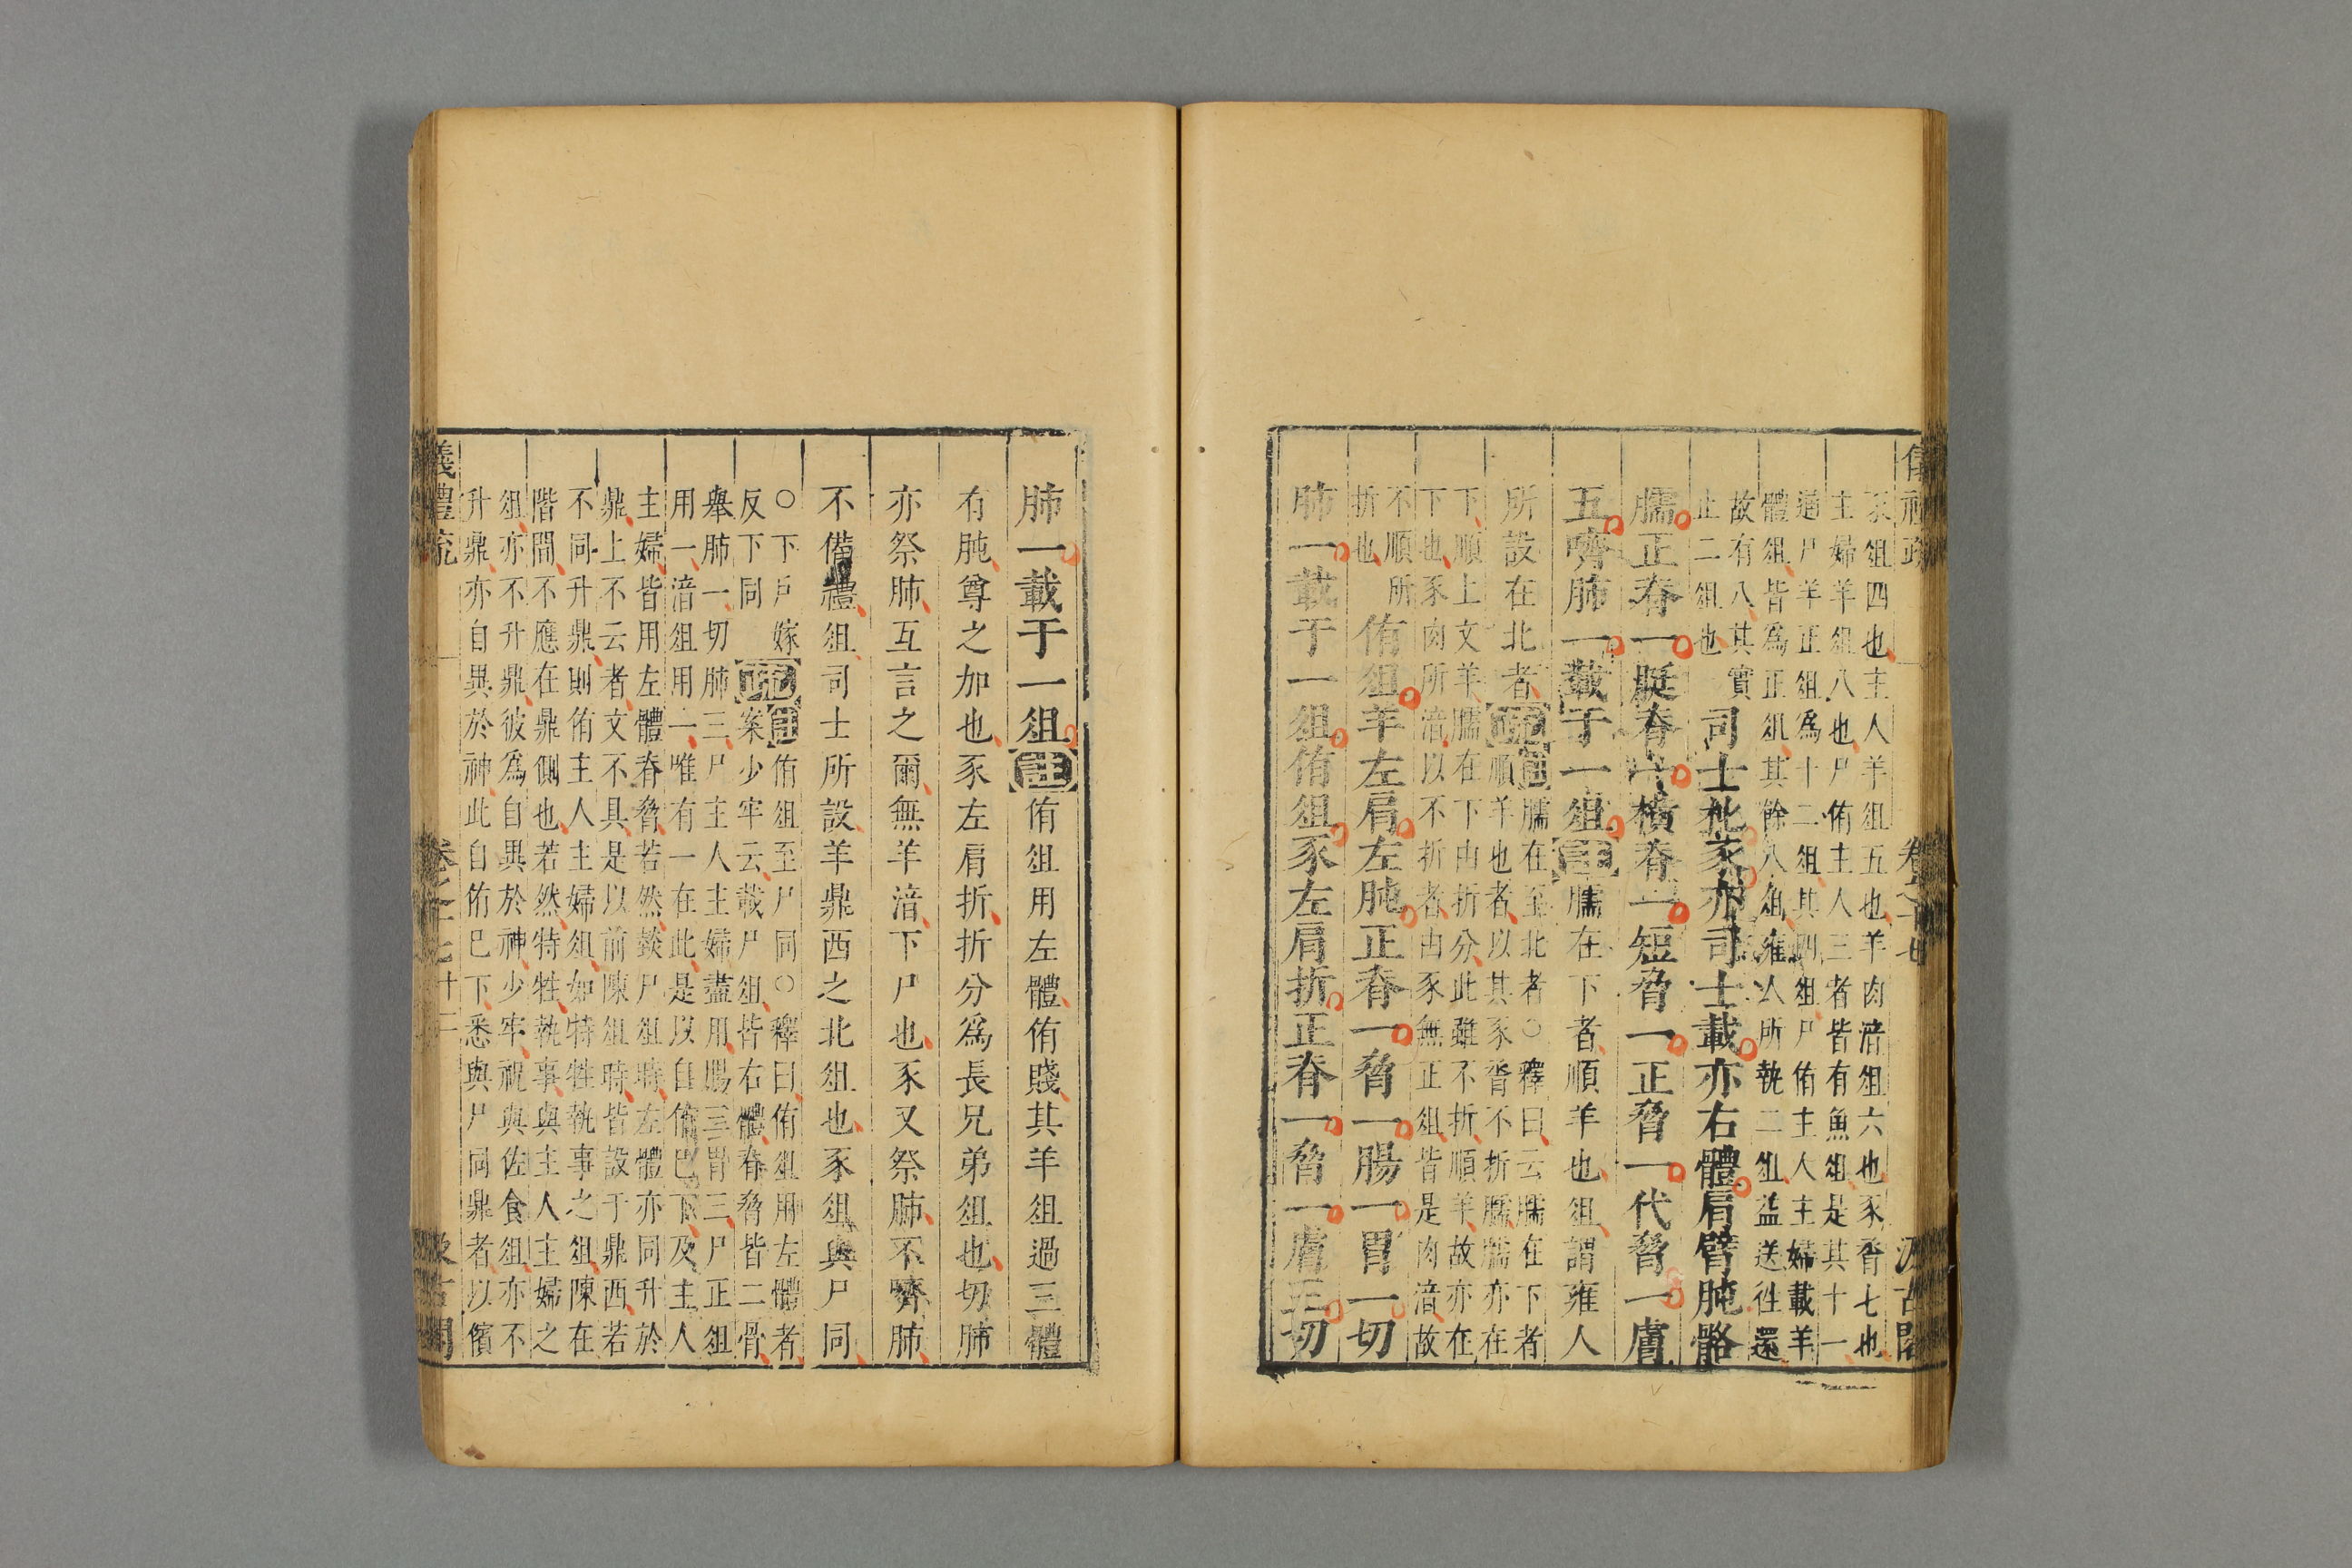 豕俎四也主人羊俎五也羊肉湆俎六也豕脀七也
主婦羊俎八也尸侑主人三者皆有魚俎是其十一
通尸羊正俎爲十二俎其四俎尸侑主人主婦載羊
體俎皆爲正俎其餘八俎雍人所執二俎益送往還
故有八其實
止二俎也
司士朼豕亦司士載亦右體肩臂肫骼
臑正脊一脡脊一橫脊一短脅一正脅一代脅一膚
五嚌肺一載于一俎註臑在下者順羊也俎謂雍人
所設在北者
疏註臑在至北者○釋曰云臑在下者
順羊也者以其豕脀不折臑臑亦在
下順上文羊臑在下由折分此雖不折順羊故亦在
下也豕肉所湆以不折者由豕無正俎皆是肉湆故
不順所
折也
侑俎羊左肩左肫正脊一脅一腸一胃一切
肺一載于一俎侑俎豕左肩折正脊一脅一膚三切
肺一載于一俎註侑俎用左體侑賤其羊俎過三體
有肫尊之加也豕左肩折折分爲長兄弟俎也切肺
亦祭肺互言之爾無羊湆下尸也豕又祭肺不嚌肺
不備禮俎司士所設羊鼎西之北俎也豕俎與尸同
○下戶嫁
反下同
疏註侑俎至尸同○釋曰侑俎用左體者
案少牢云載尸俎皆右體脊脅皆二骨
舉肺一切肺三尸主人主婦盡用腸三胃三尸正俎
用一湆俎用一唯有一在此是以自侑已下及主人
主婦皆用左體脊脅若然䉼尸俎時左體亦同升於
鼎上不云者文不具是以前陳俎時皆設于鼎西若
不同升鼎則侑主人主婦俎如特牲執事之俎陳在
階間不應在鼎側也若然特牲執事與主人主婦之
俎亦不升鼎彼爲自異於神少牢祝與佐食俎亦不
升鼎亦自異於神此自侑已下悉與尸同鼎者以儐
儀禮疏 卷之十七 十三 汲古閣